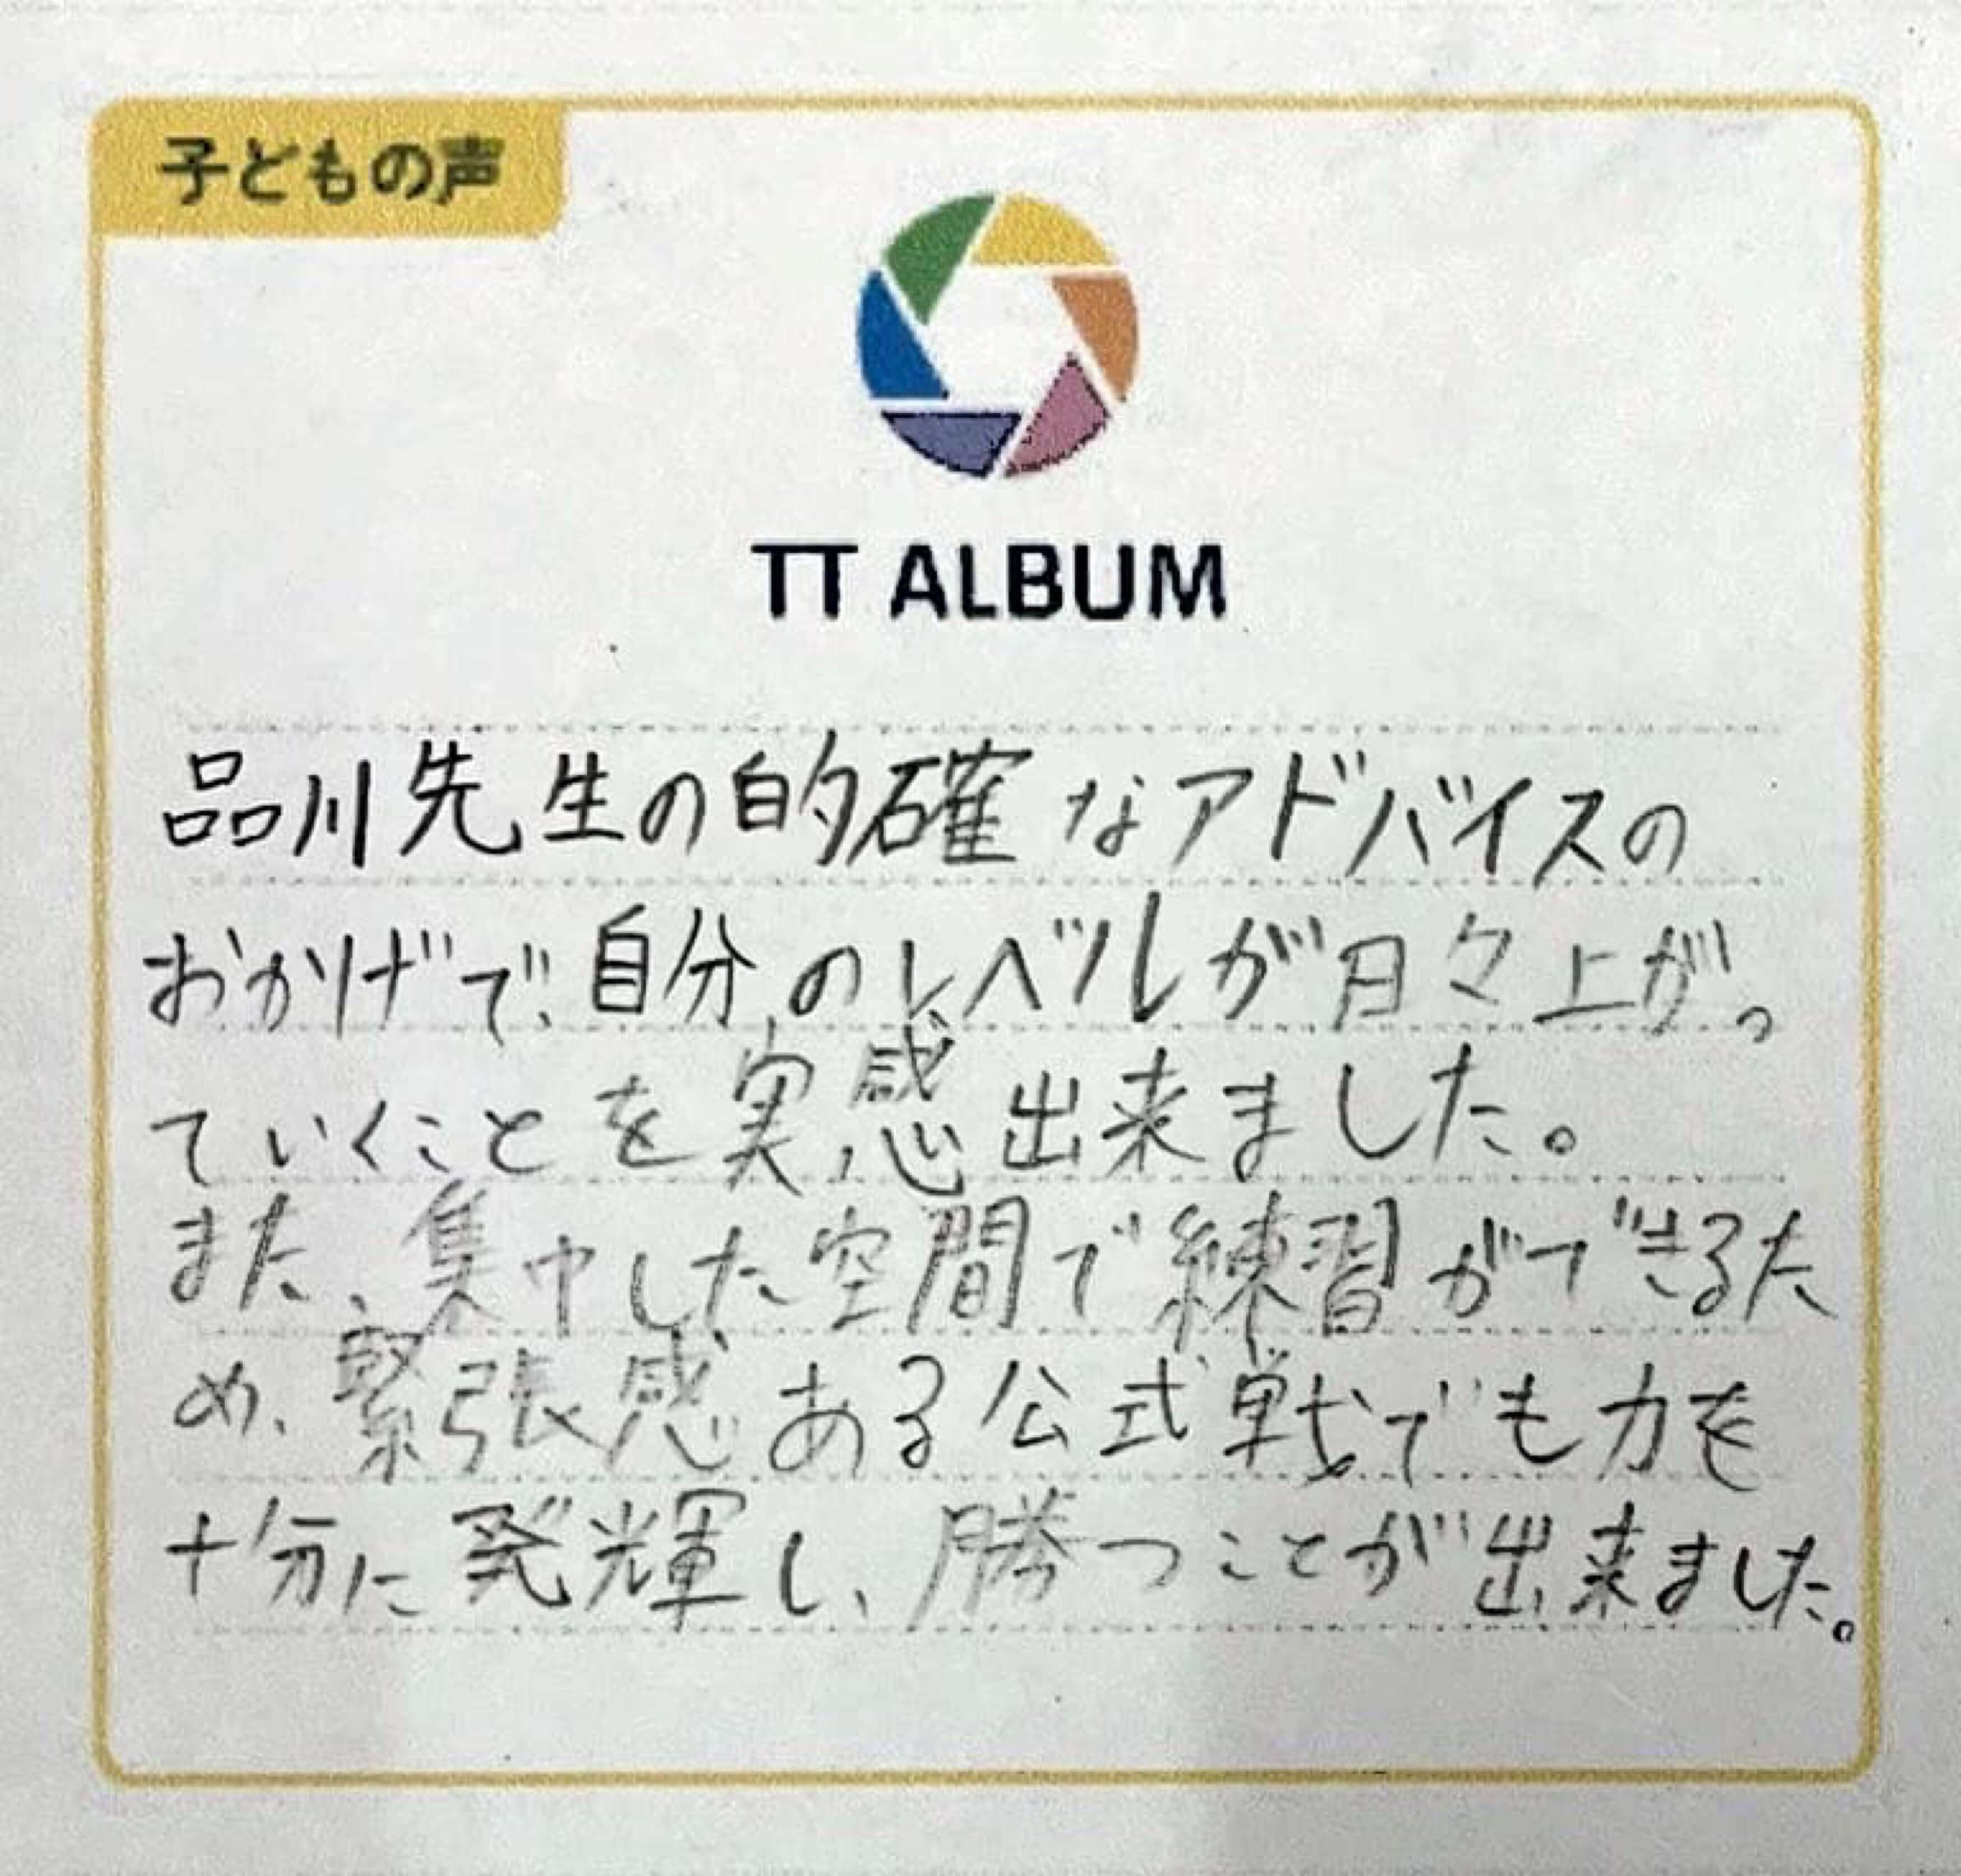 子どもの声
TT ALBUM
品川先生の的確なアドバイスの
おかげで、自分のレベルが月々上がっ
ていくことを実感出来ました。
また、集中した空間で練習ができるた
め、緊張感ある公式戦でも力を
十分に発輝し、勝つことが出来ました。